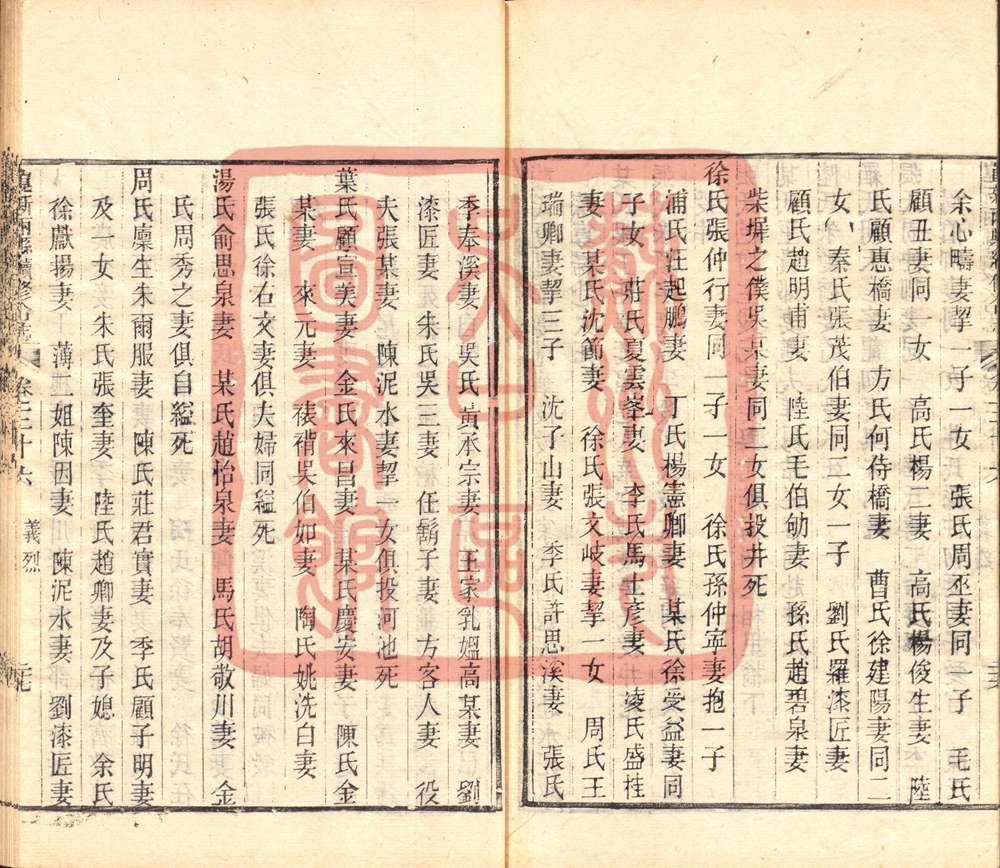 余心疇妻挈一子一女 張氏周丞妻同一子 毛氏
顧丑妻同一女 高氏楊二妻 高氏楊俊生妻 陸
氏顧惠橋妻 方氏何侍橋妻 曹氏徐建陽妻同二
女 秦氏張茂伯妻同二女一子 劉氏羅漆匠妻
顧氏趙明甫妻 陸氏毛伯劬妻 孫氏趙碧泉妻
柴墀之僕吳杲妻同二女俱投井死
徐氏張仲行妻同二子一女 徐氏孫仲寧妻抱一子
浦氏汪起鵬妻 丁氏楊憲卿妻 某氏徐受益妻同
子女 莊氏夏雲峯妻 李氏馬士彥妻 凌氏盛桂
妻 某氏沈節妻 徐氏張文岐妻挈一女 周氏王
瑞卿妻挈三子 沈子山妻 季氏許思溪妻 張氏
季奉溪妻 吳氏黃承宗妻 王家乳媼高某妻 劉
漆匠妻 朱氏吳三妻 任鬍子妻 方客人妻 役
夫張某妻 陳泥水妻挈一女俱投河池死
葉氏顧宣美妻 金氏來昌妻 某氏慶安妻 陳氏金
某妻 來元妻 裱褙吳伯如妻 陶氏姚洗白妻
張氏徐右文妻俱夫婦同縊死
湯氏俞思泉妻 某氏趙怡泉妻 馬氏胡敬川妻 金
氏周秀之妻俱自縊死
周氏廩生朱爾服妻 陳氏莊君實妻 季氏顧子明妻
及一女 朱氏張奎妻 陸氏趙卿妻及子媳 余氏
徐獻揚妻 薄二姐陳因妻 陳泥水妻 劉漆匠妻
卷三十六 義烈